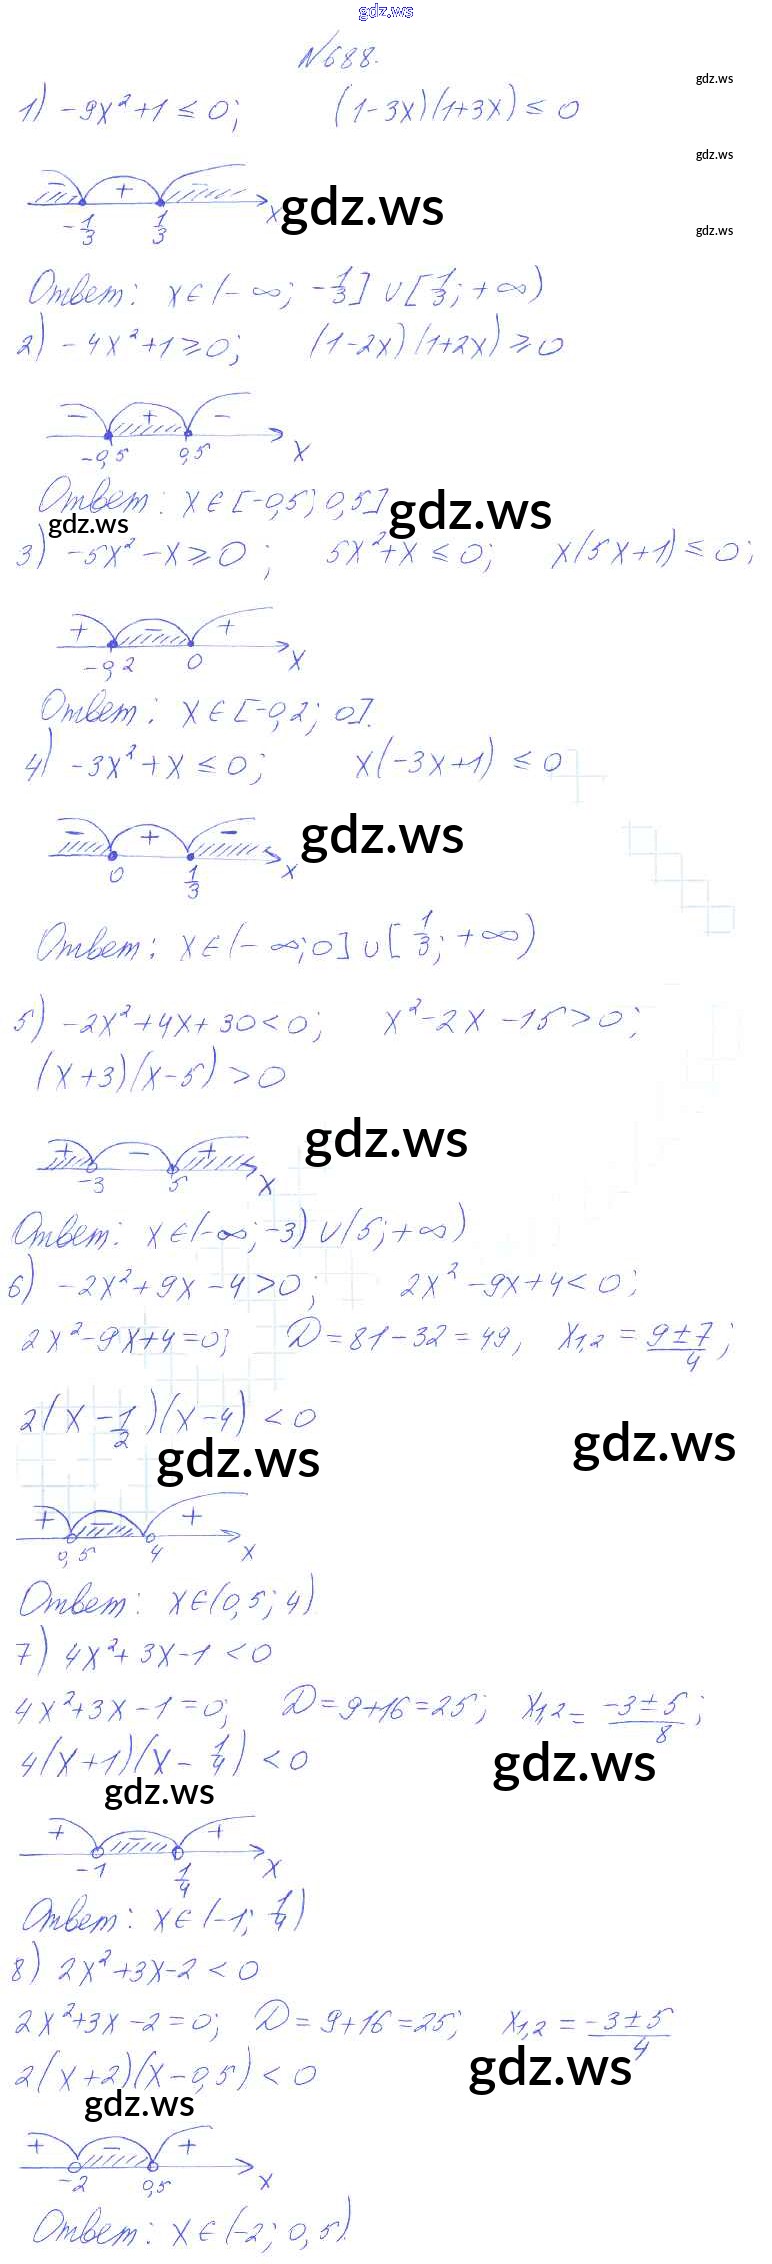 gdz.ws
N688.
gdz.ws
1) -9x²+1 ≤ 0; (1-3x)(1+3x) ≤ 0
gdz.ws
- + -
-1/3 1/3 x
gdz.ws
gdz.ws
Ответ: x∈(-∞; -1/3] ∪ [1/3; +∞)
2) -4x²+1 ≥ 0; (1-2x)(1+2x) ≥ 0
- + -
-0,5 0,5 x
Ответ: x∈[-0,5; 0,5]
gdz.ws
gdz.ws
3) -5x²-x ≥ 0; 5x²+x ≤ 0; x(5x+1) ≤ 0;
+ - +
-0,2 0 x
Ответ: x∈[-0,2; 0].
4) -3x²+x ≤ 0; x(-3x+1) ≤ 0
- + -
gdz.ws
0 1/3 x
Ответ: x∈(-∞; 0] ∪ [1/3; +∞)
5) -2x²+4x+30 < 0; x²-2x-15 > 0;
(x+3)(x-5) > 0
gdz.ws
+ - +
-3 5 x
Ответ: x∈(-∞; -3) ∪ (5; +∞)
6) -2x²+9x-4 > 0; 2x²-9x+4 < 0;
2x²-9x+4=0; D=81-32=49, x1,2 = (9±7)/4;
2(x-1/2)(x-4) < 0
gdz.ws
gdz.ws
+ - +
0,5 4 x
Ответ: x∈(0,5; 4)
7) 4x²+3x-1 < 0
4x²+3x-1=0; D=9+16=25; x1,2 = (-3±5)/8;
4(x+1)(x-1/4) < 0
gdz.ws
gdz.ws
+ - +
-1 1/4 x
Ответ: x∈(-1; 1/4)
8) 2x²+3x-2 < 0
2x²+3x-2=0; D=9+16=25; x1,2 = (-3±5)/4
2(x+2)(x-0,5) < 0
gdz.ws
gdz.ws
+ - +
-2 0,5 x
Ответ: x∈(-2; 0,5).